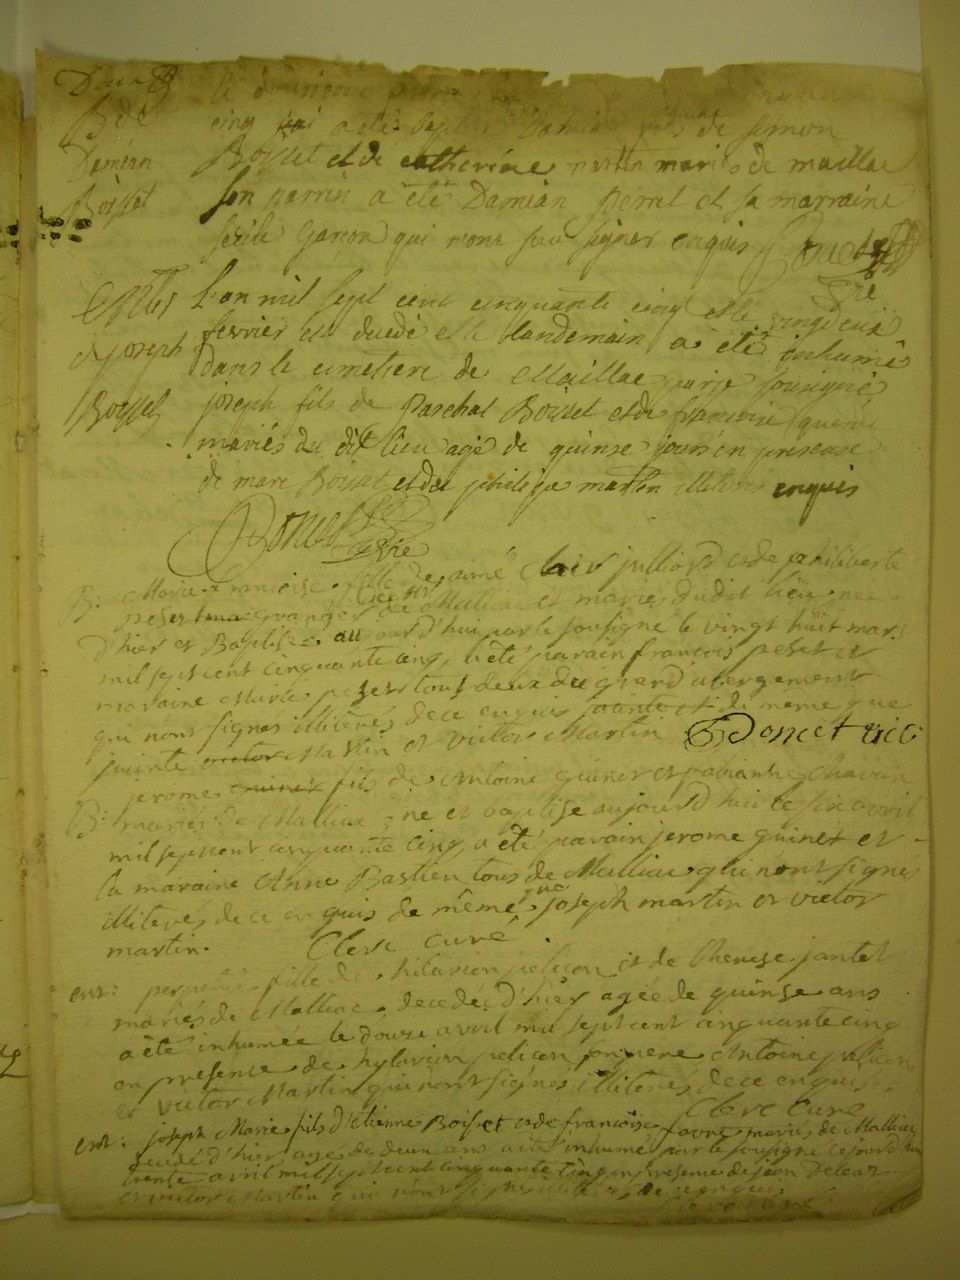 Bte
Damian
Boisset
a été baptisé Damian fils de Simon
Boisset et de catherine martin mariés de maillac
son parrin a été Damian perret et sa marraine
qui nont sçu signer enquis Doncet
vic
Joseph
Boisset
L'an mil sept cent cinquante cinq et le vingt deux
fevrier est et le landemain a été inhumé
dans le cimetiere de Maillac par je sousigné
joseph fils de Paschal Boisset et de françoise
mariés du dit lieu agé de quinse jours en presance
de marc Boisset et de philippe martin illiterés enquis
Doncet vic
B: Marie françoise fille de aimé Clair julliard et de philiberte
peset de Malliac et mariés dudit lieu, née
d'hier et Baptisée aujourd'hui par le sousigné le vingt huit mars
mil sept cent cinquante cinq, a été parain françois peset et
maraine Marie peset tous deux du grand abergement
qui nons signés illiterés de ce enquis et de meme que
Martin et victor Martin Doncet vic
B: jerome fils de Antoine guinet et chavan
mariés de Malliac, né et baptisé aujourd'hui le six avril
mil sept cent cinquante cinq, a été parain jerome guinet et
la maraine Anne Bastien tous de Malliac qui nont signés
illiterés de ce enquis de même que joseph martin et victor
martin. Clerc curé.
ent: fille de hilarion pelicon et de Therese jantet
mariés de Malliac, decedée d'hier agée de quinse ans
a été inhumée le douze avril mil sept cent cinquante cinq
en presence de hylarion pelicon son pere Antoine pelicon
et victor Martin qui nont signés illiterés de ce enquis.
Clerc curé
ent: joseph Marie fils d'Etienne Boisset et de françoise favre mariés de Malliac
decedé d'hier agé de deux ans a été inhumé par le sousigné ce jourd'hui
trente avril mil sept cent cinquante cinq en presence de jean
et victor Martin qui nont signés illiterés de ce enquis